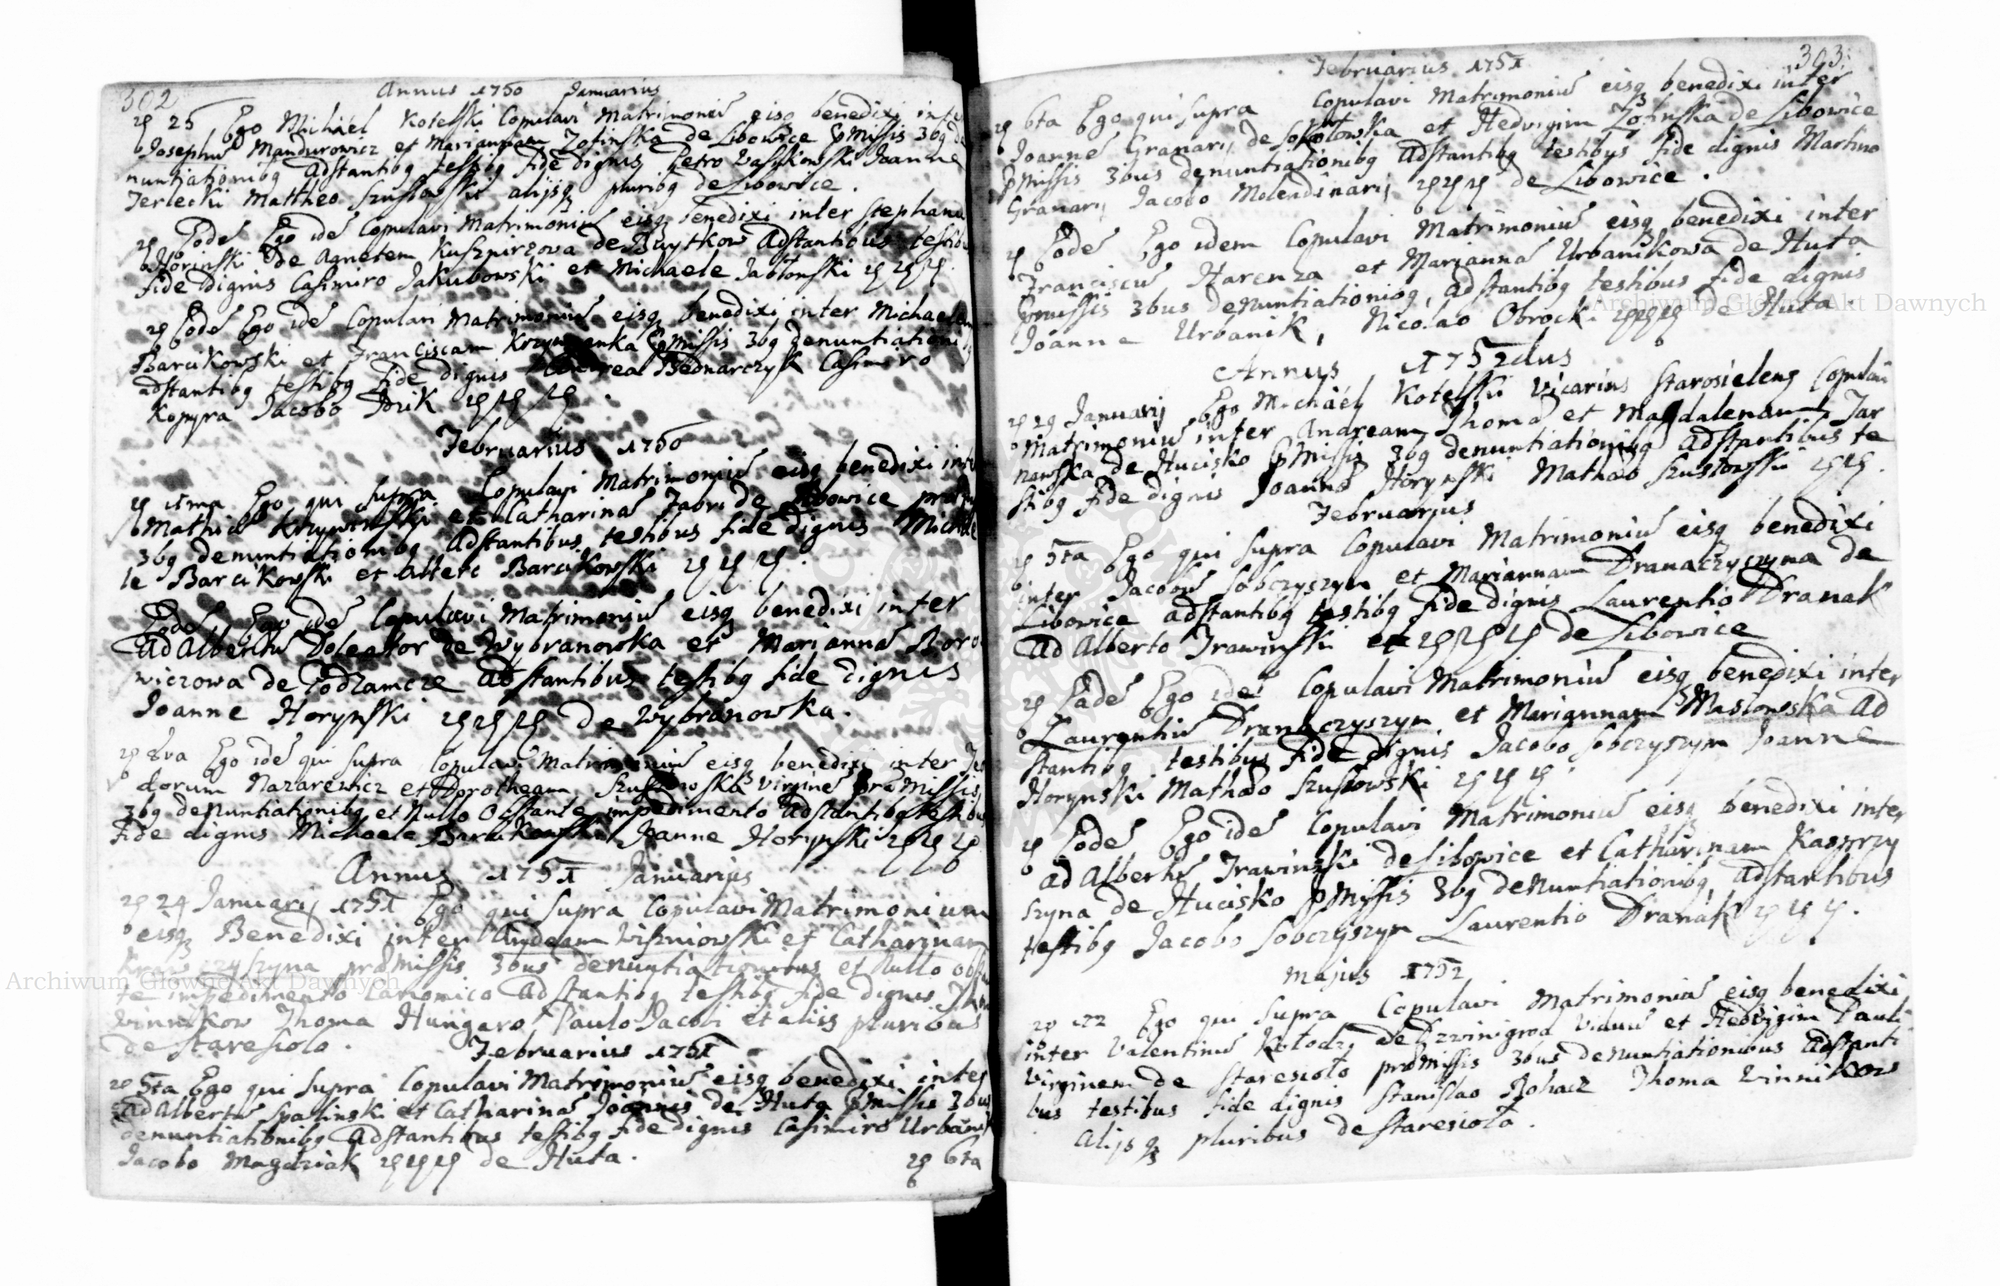 302
Annus 1750 Januarius
25 Ego Michael Kotelski Copulavi Matrimoniũ eisq benedixi inter
Josephũ Mandurowicz et Mariannam Zofinska de Libowice p̃missis 3bq de
nuntiationibq adstantibq testibq fide dignis Petro Wasskowski Joanne
Terlecki Mattheo Szustowski alijsq pluribq de Libowice.
Eodẽ Ego idẽ Copulavi Matrimoniũ eisq benedixi inter Stephanũ
Horinski de Agnetem Kusznirzowa de Brytkow adstantibus testibus
fide dignis Casimiro Jakubowski et Michaele Jablonski
Eodẽ Ego idẽ Copulavi Matrimoniũ eisq benedixi inter Michaelem
Barcikowski et Franciscam p̃missis 3bq denuntiationi
adstantibq testibq fide dignis Bednarczyk Casimiro
Kopyra Jacobo Idzik
Februarius 1750
1ma Ego qui supra Copulavi Matrimoniũ eisq benedixi inter
Mathiã Krzywinski et Catharinã Fabri de Libowice
3bq denuntiationibq adstantibus testibus fide dignis Micha
le Barcikowski et altero Barcikowski
Eodẽ Ego idẽ Copulavi Matrimoniũ eisq benedixi inter
Adalbertũ Dolegtor de Wybranowka et Mariannã Boro
wiczowa de Podzamcze adstantibus testibq fide dignis
Joanne Horynski de Wybranowka.
8va Ego idẽ qui supra Copulavi Matrimoniũ eisq benedixi inter
dorum Nazarewicz et Dorotheam Szustowska virginẽ præmissis
3bq denuntiationibq et nullo obstante impedimento adstantibq testibus
fide dignis Michaele Barcikowski Joanne Horynski
Annus 1751 Januarius
24 Januarij 1751 Ego qui supra Copulavi Matrimonium
eisq Benedixi inter Andream Wiszniowski et Catharinam
præmissis 3bus denuntiationibus et nullo obstan
te impedimento Canonico adstantibq testibq fide dignis
Winnikow Thoma Hungaro, Paulo Jacobi et aliis pluribus
de Staresiolo.
Februarius 1751
5ta Ego qui supra Copulavi Matrimoniũ eisq benedixi inter
Adalbertũ Spalinski et Catharinã Joannis de Huta p̃missis 3bus
denuntiationibq adstantibus testibq fide dignis Casimiro Urbanik
Jacobo Magdziak de Huta.
6ta
303
Februarius 1751
6ta Ego qui supra Copulavi Matrimoniũ eisq benedixi inter
Joannẽ Granarij de Sokolowka et Hedvigim Zofinska de Libowice
p̃missis 3bus denuntiationibq adstantibq testibus fide dignis Martino
Granarij Jacobo Molendinarij de Libowice.
Eodẽ Ego idem Copulavi Matrimoniũ eisq benedixi inter
Franciscũ Harenza et Mariannã Urbanikowa de Huta
p̃missis 3bus denuntiationibq, adstantibq testibus fide dignis
Joanne Urbanik, Nicolao Obrocki de Huta
Annus 1752dus
29 Januarij Ego Michael Kotelski Vicarius Starosielens Copulavi
Matrimoniũ inter Andream Thoma et Magdalenam Tar
nawska de Hucisko p̃missis 3bq denuntiationibq adstantibus te
stibq fide dignis Joanne Horynski Mathæo Szustowski
Februarius
5ta Ego qui supra Copulavi Matrimoniũ eisq benedixi
inter Jacobũ Sobczyszyn et Mariannam Dranaczyszyna de
Libowice adstantibq testibq fide dignis Laurentio Dranak
Adalberto Trawinski et de Libowice
Eadẽ Ego idẽ Copulavi Matrimoniũ eisq benedixi inter
Laurentiũ Dranaczyszyn et Mariannam Maslowska ad
stantibq testibus fide dignis Jacobo Sobczyszyn Joanne
Horynski Mathæo Szustowski
Eodẽ Ego idẽ Copulavi Matrimoniũ eisq benedixi inter
Adalbertũ Trawinski de Libowice et Catharinam Kaszczy
szyna de Hucisko p̃missis 3bq denuntiationibq adstantibus
testibq Jacobo Sobczyszyn Laurentio Dranak
Majus 1752
22 Ego qui supra Copulavi Matrimoniũ eisq benedixi
inter Valentinũ Kolodzi de Dzwinigrod viduũ et Hedvigim Pauli
virginem de Staresiolo præmissis 3bus denuntiationibus adstanti
bus testibus fide dignis Stanislao Rohacz Thoma Winnikow
alijsq pluribus de Staresiola.
Archiwum Główne Akt Dawnych
Archiwum Główne Akt Dawnych